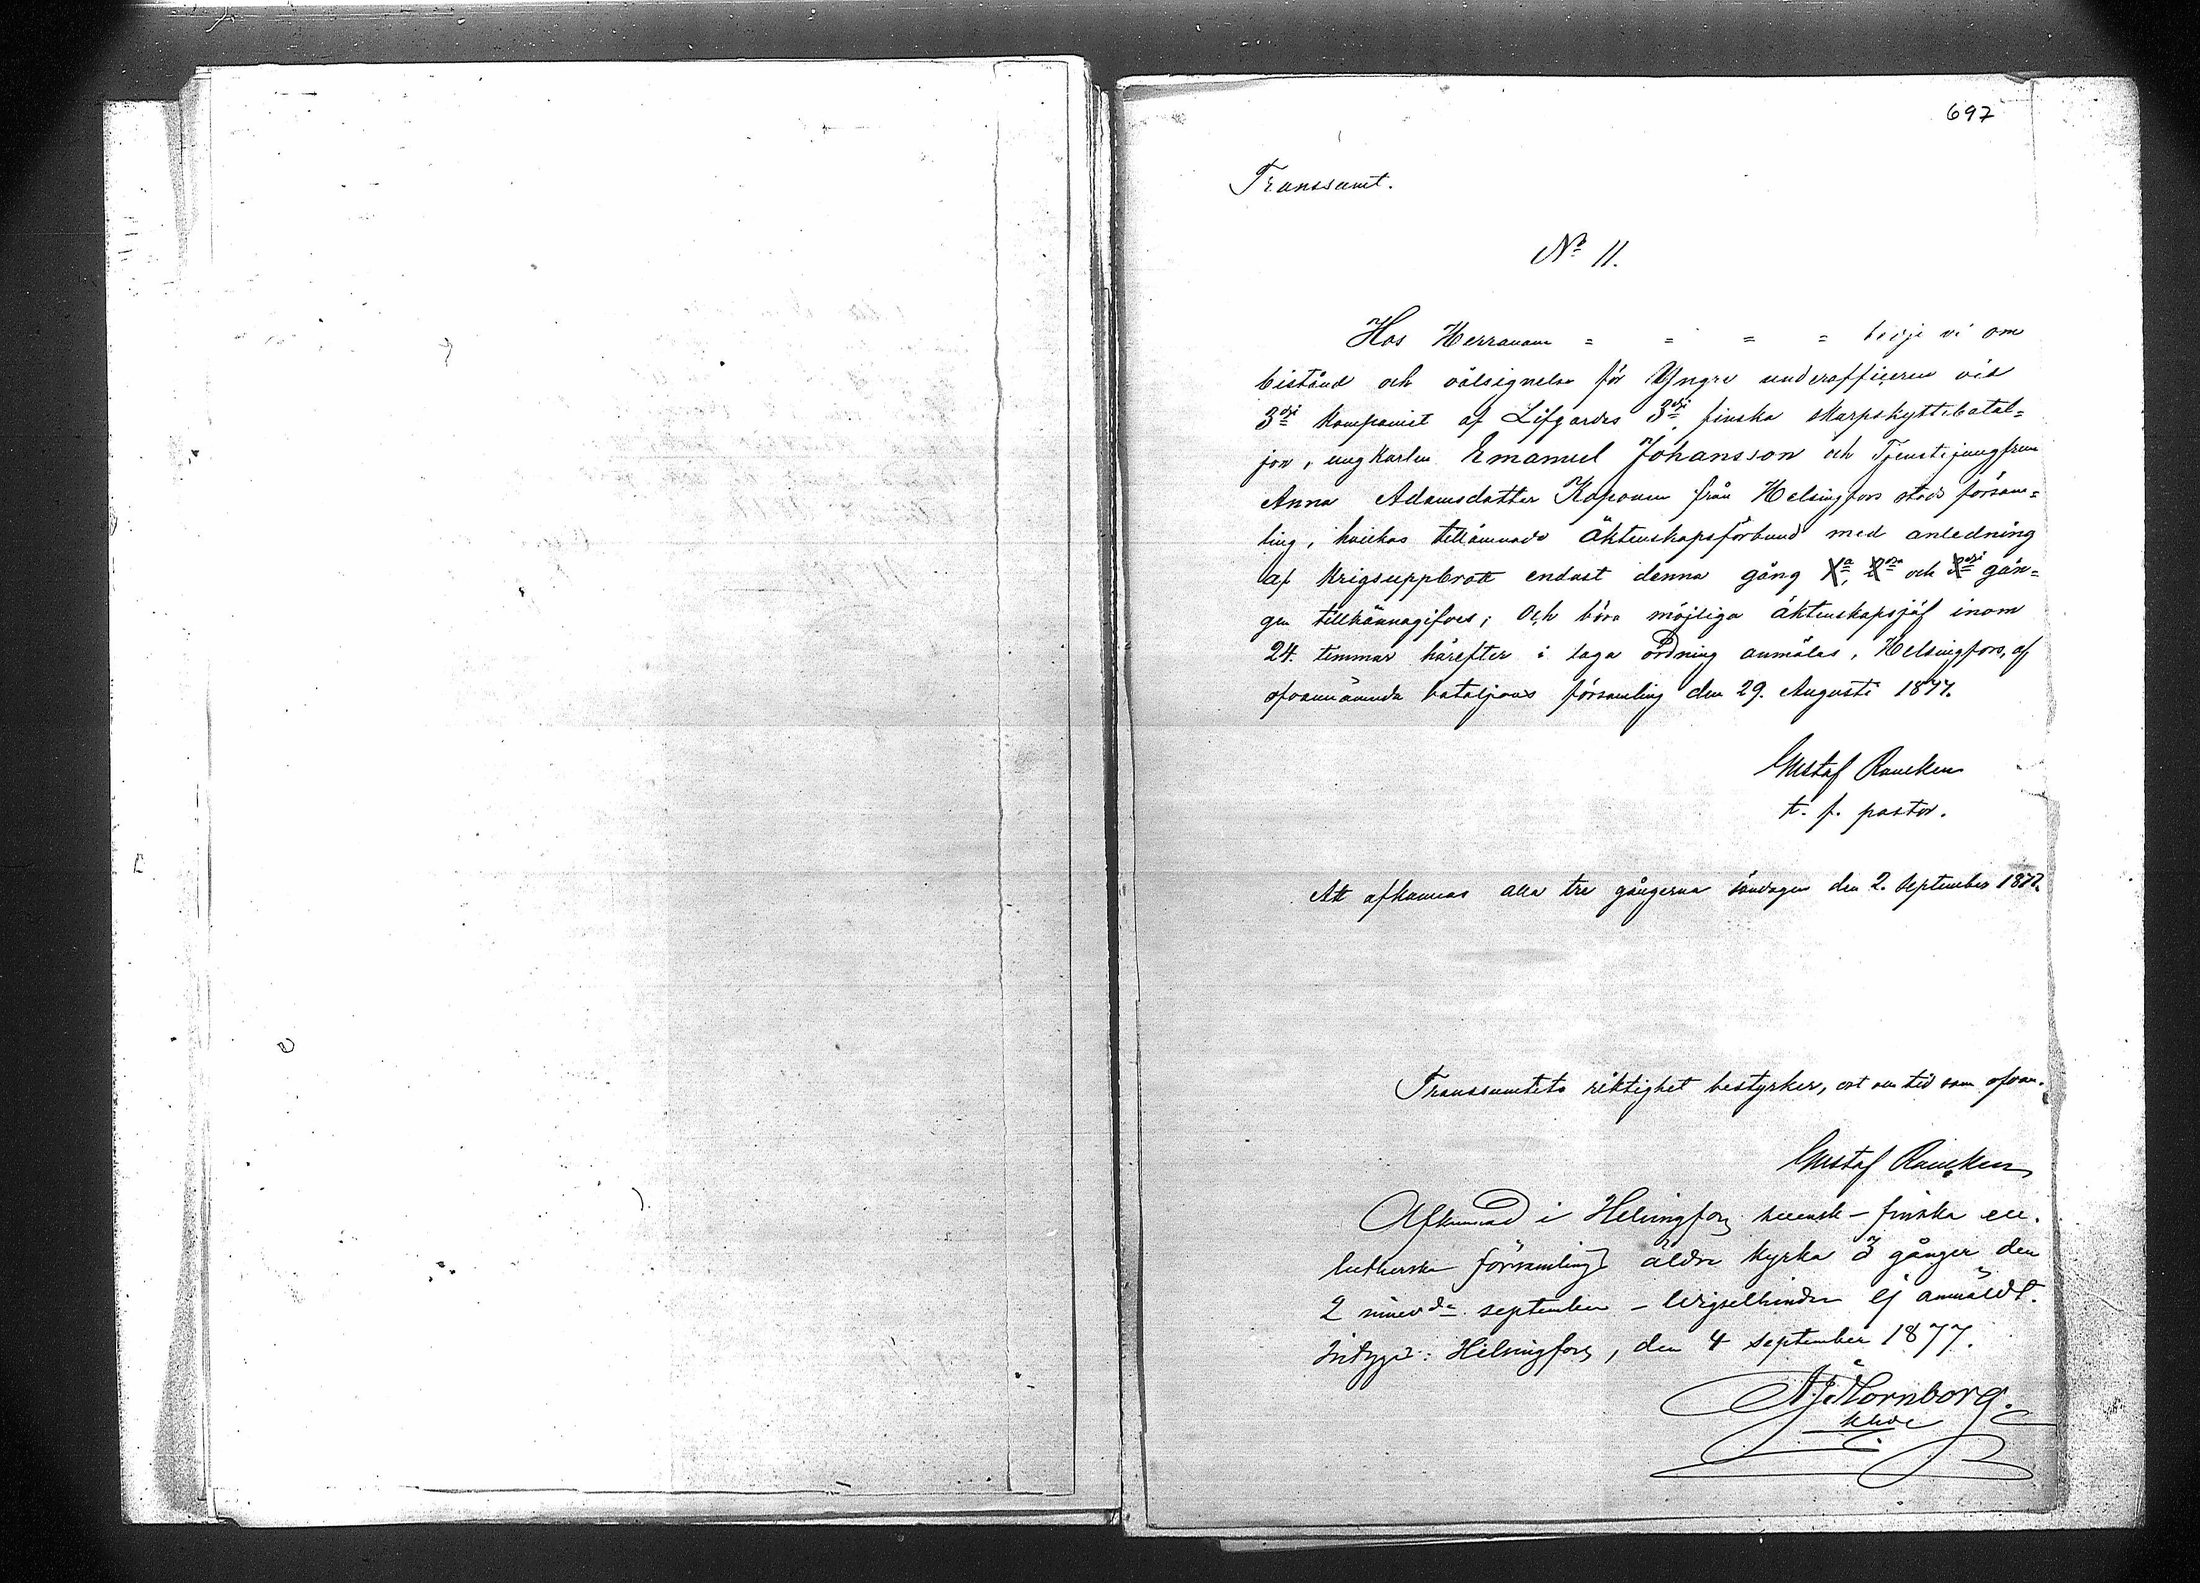 697
Transsumt.
No 11.
Hos Herranom = = = = bedje vi om
bistånd och välsignelse för Yngre underofficeren vid
3dje kompaniet af Lifgardes 3dje finska skarpskyttebatal=
jon, ungkarlen Emanuel Johansson och Tjenstejungfrun
Anna Adamsdotter Koponen från Helsingfors stads försam=
ling, hvilkas tillämnade äktenskapsförbund med anledning
af krigsuppbrott endast denna gång 1a, 2dra och 3dje gån=
gen tillkännagifves; och böra möjliga äktenskapsjäf inom
24. timmar härefter i laga ordning anmälas. Helsingfors, af
ofvannämnda bataljons församling den 29. Augusti 1877.
Gustaf Rancken
t. f. pastor.
Att afkunnas alla tre gångerna söndagen den 2. September 1877.
Transsumtets riktighet bestyrker, ort och tid som ofvan.
Gustaf Rancken
Afkunnad i Helsingfors svensk-finska ev.
lutherska församlings äldre kyrka 3 gånger den
2 innevde september – Wigselhinder ej anmäldt.
Intygar: Helsingfors, den 4 september 1877.
Hornborg.